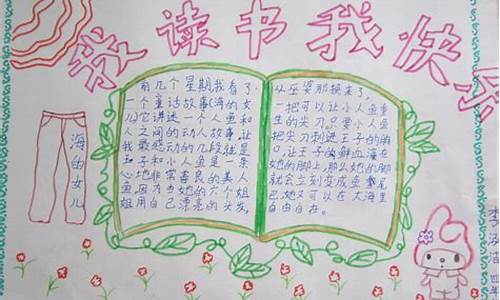 我读书我快乐
前几个星期我看了
一个童话故事《海的女
儿》它讲述一个人鱼和
人之间的动人故事,让
我最感动的几段就是
王子和小人鱼是一条
心地非常善良的美人
鱼,因为当她的六个姐
姐用自己漂亮的头发,
从巫婆那换来了,
一把可以让小人鱼重
生的尖刀,只要小人鱼
把尖刀刺进王子的胸
口,让王子的鲜血滴在
她的脚上,那么她的脚
就会立刻变成鱼尾
巴,她又可以在大海里
自由自在。
海的女儿
李
洁
四